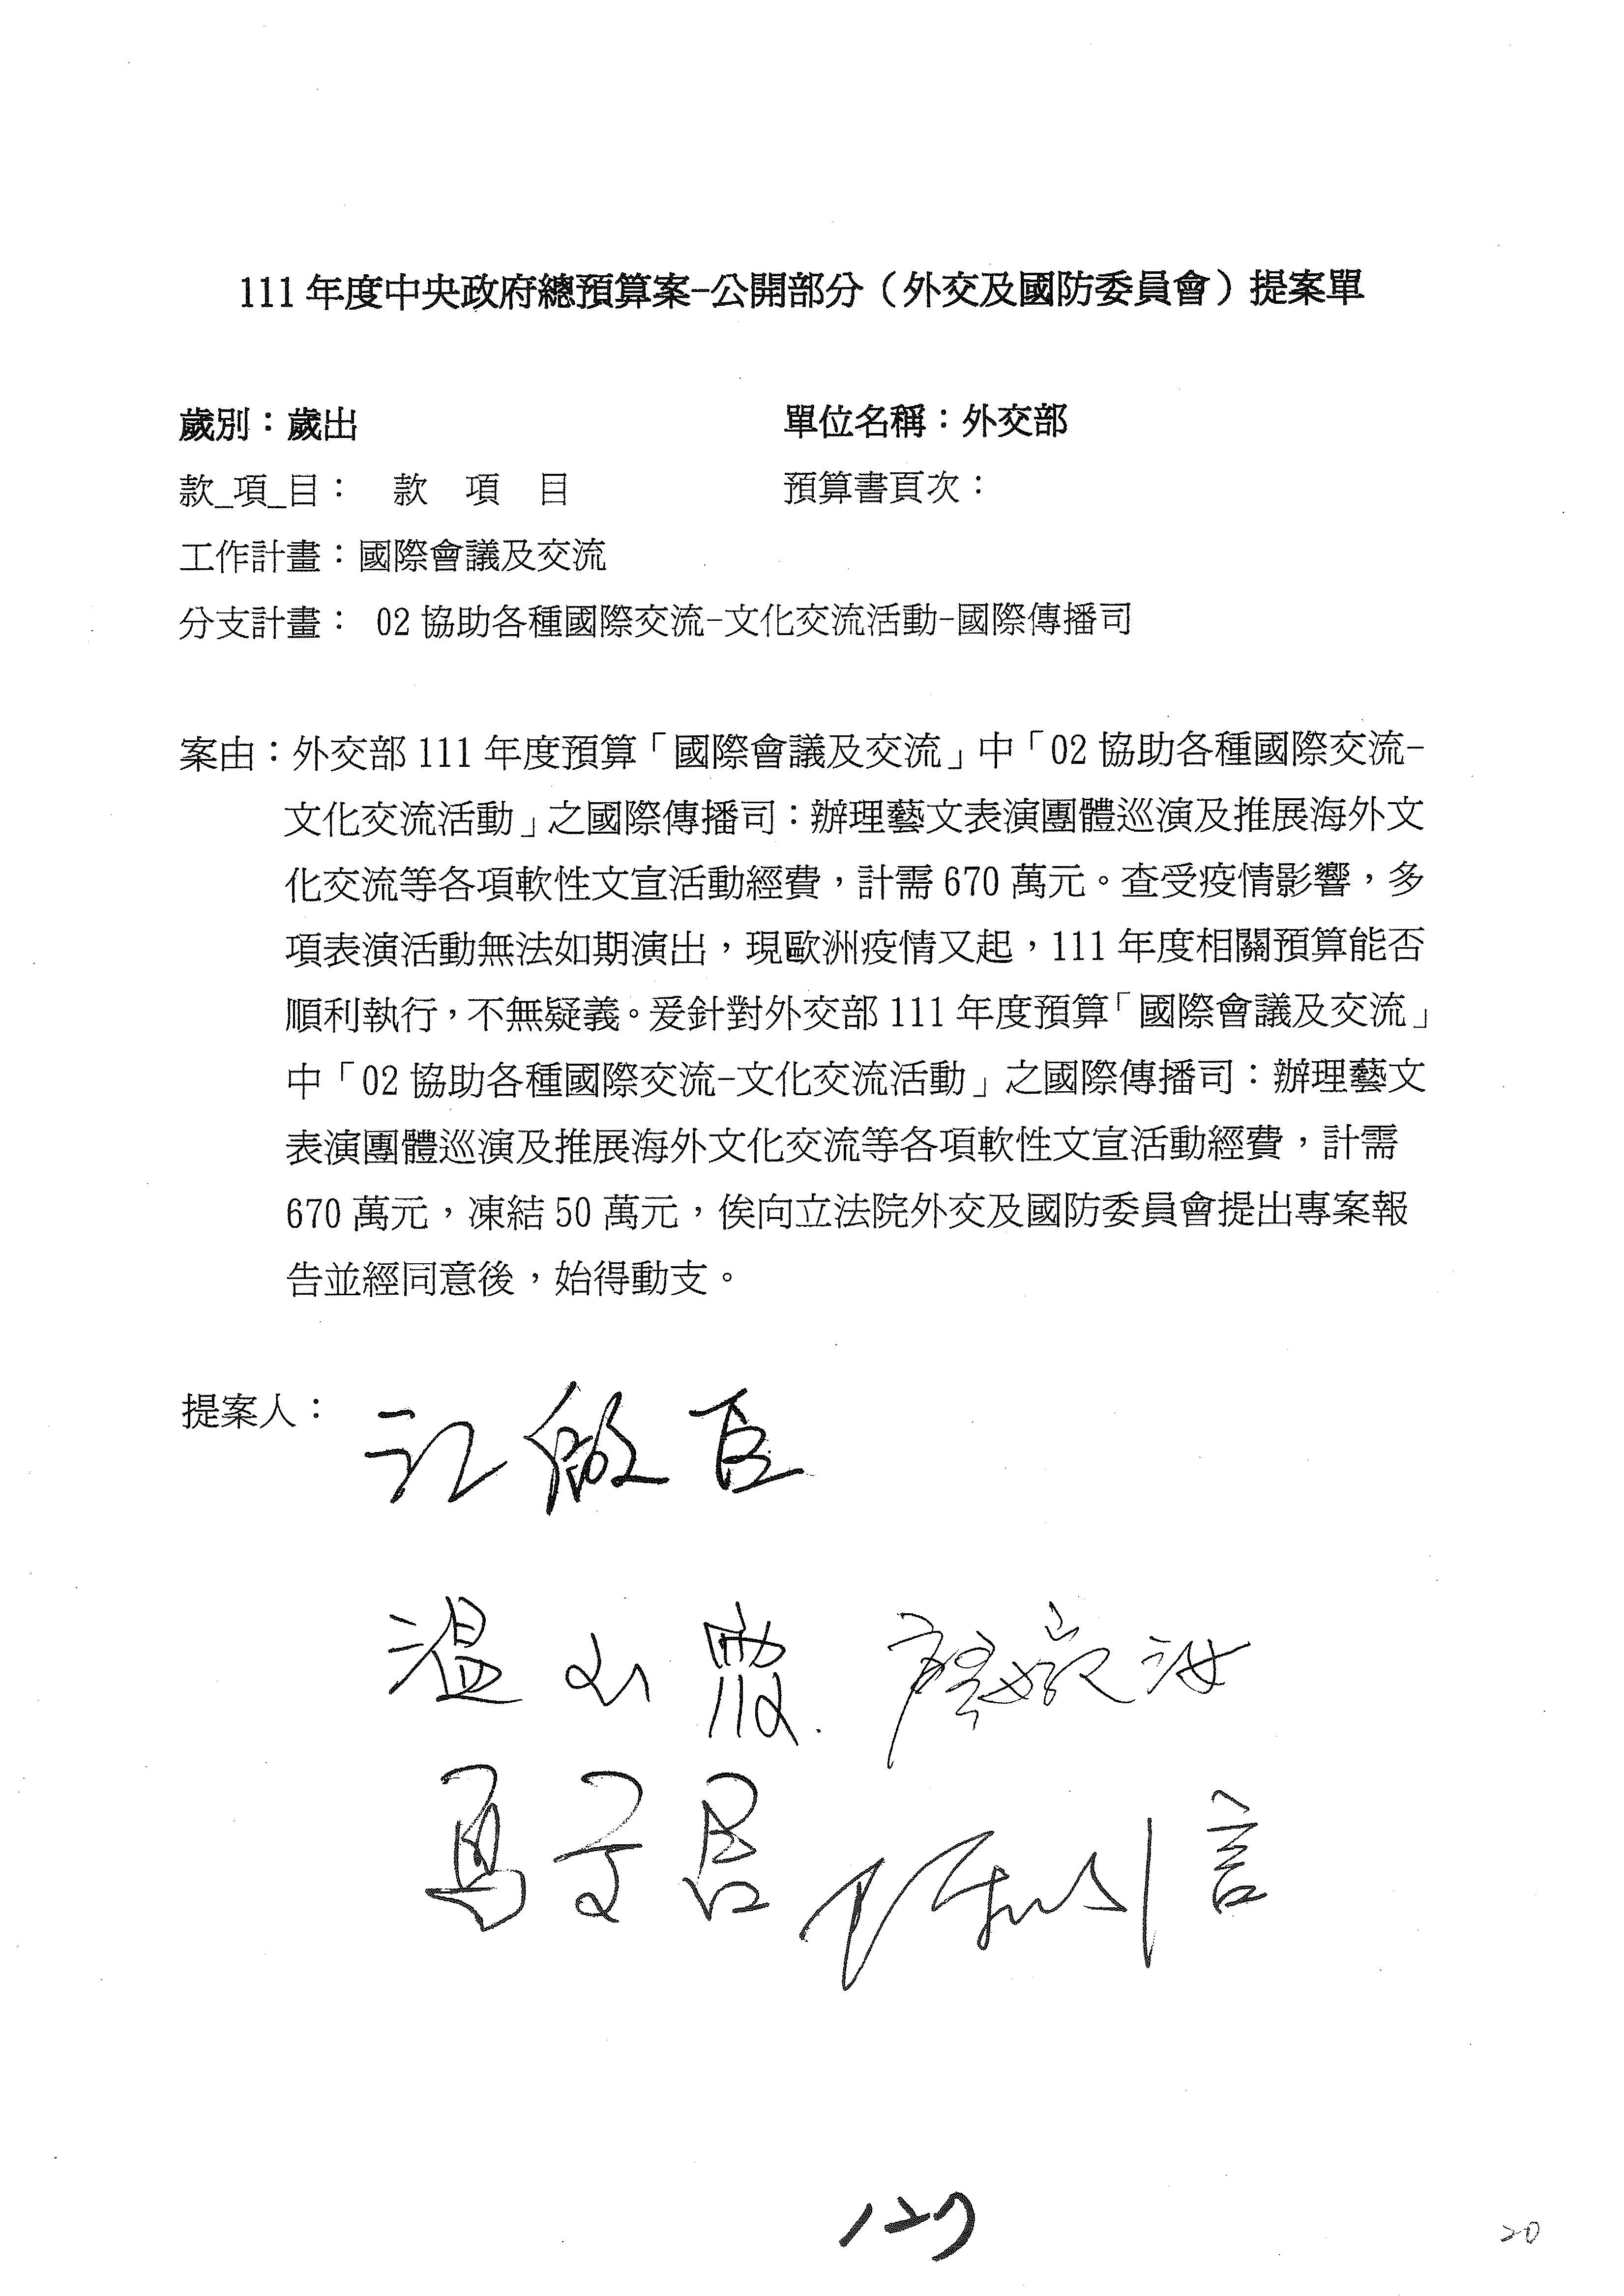 111 年度中央政府總預算案-公開部分（外交及國防委員會）提案單
歲別：歲出 單位名稱：外交部
款_項_目： 款 項 目 預算書頁次：
工作計畫：國際會議及交流
分支計畫： 02 協助各種國際交流-文化交流活動-國際傳播司
案由：外交部 111 年度預算「國際會議及交流」中「02 協助各種國際交流-
文化交流活動」之國際傳播司：辦理藝文表演團體巡演及推展海外文
化交流等各項軟性文宣活動經費，計需 670 萬元。查受疫情影響，多
項表演活動無法如期演出，現歐洲疫情又起，111 年度相關預算能否
順利執行，不無疑義。爰針對外交部 111 年度預算「國際會議及交流」
中「02 協助各種國際交流-文化交流活動」之國際傳播司：辦理藝文
表演團體巡演及推展海外文化交流等各項軟性文宣活動經費，計需
670 萬元，凍結 50 萬元，俟向立法院外交及國防委員會提出專案報
告並經同意後，始得動支。
提案人：
江啟臣
溫玉霞 廖婉汝
馬文君 陳以信
127
20